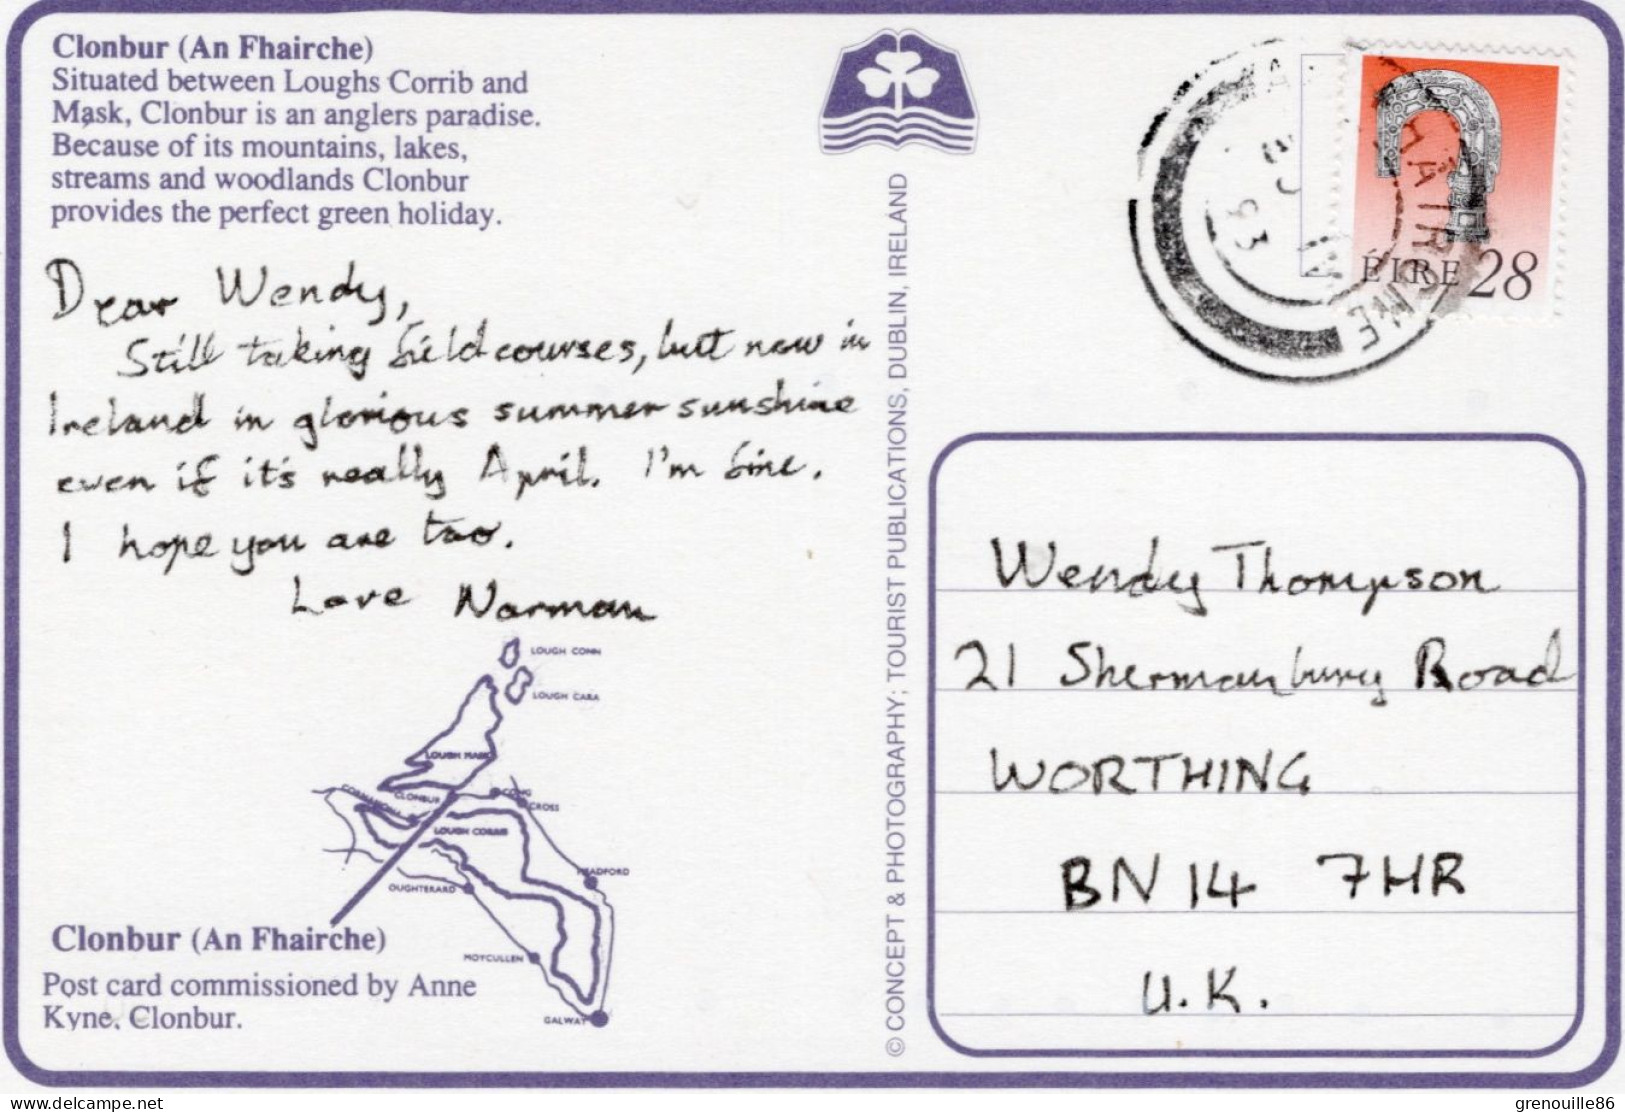 Clonbur (An Fhairche)
Situated between Loughs Corrib and
Mask, Clonbur is an anglers paradise.
Because of its mountains, lakes,
streams and woodlands Clonbur
provides the perfect green holiday.
Dear Wendy,
Still taking field courses, but now in
Ireland in glorious summer sunshine
even if it's really April. I'm fine.
I hope you are too.
Love Norman
LOUGH CONN
LOUGH CARA
LOUGH MASK
CORNAMONA
CLONBUR
CONG
CROSS
LOUGH CORRIB
HEADFORD
OUGHTERARD
MOYCULLEN
GALWAY
Clonbur (An Fhairche)
Post card commissioned by Anne
Kyne, Clonbur.
© CONCEPT & PHOTOGRAPHY; TOURIST PUBLICATIONS, DUBLIN, IRELAND
93
ÉIRE 28
Wendy Thompson
21 Shermanbury Road
WORTHING
BN14 7HR
U.K.
delcampe.net
grenouille86